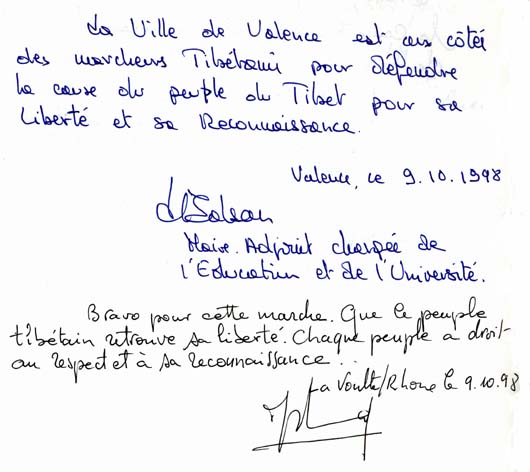 La Ville de Valence est aux côtés
des marcheurs Tibétains pour défendre
la cause du peuple du Tibet pour sa
Liberté et sa Reconnaissance.
Valence, le 9.10.1998
Maire. Adjoint chargée de
l'Education et de l'Université.
Bravo pour cette marche. Que le peuple
tibétain retrouve sa liberté. Chaque peuple a droit
au respect et à sa reconnaissance...
La Voulte/Rhone le 9.10.98